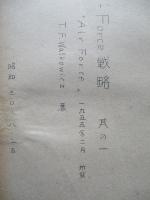 - Force 戦略 其の一
"Air Force" 一九五五年二月 所載
T.F. Walkowicz 著
昭和 三〇.六.二五